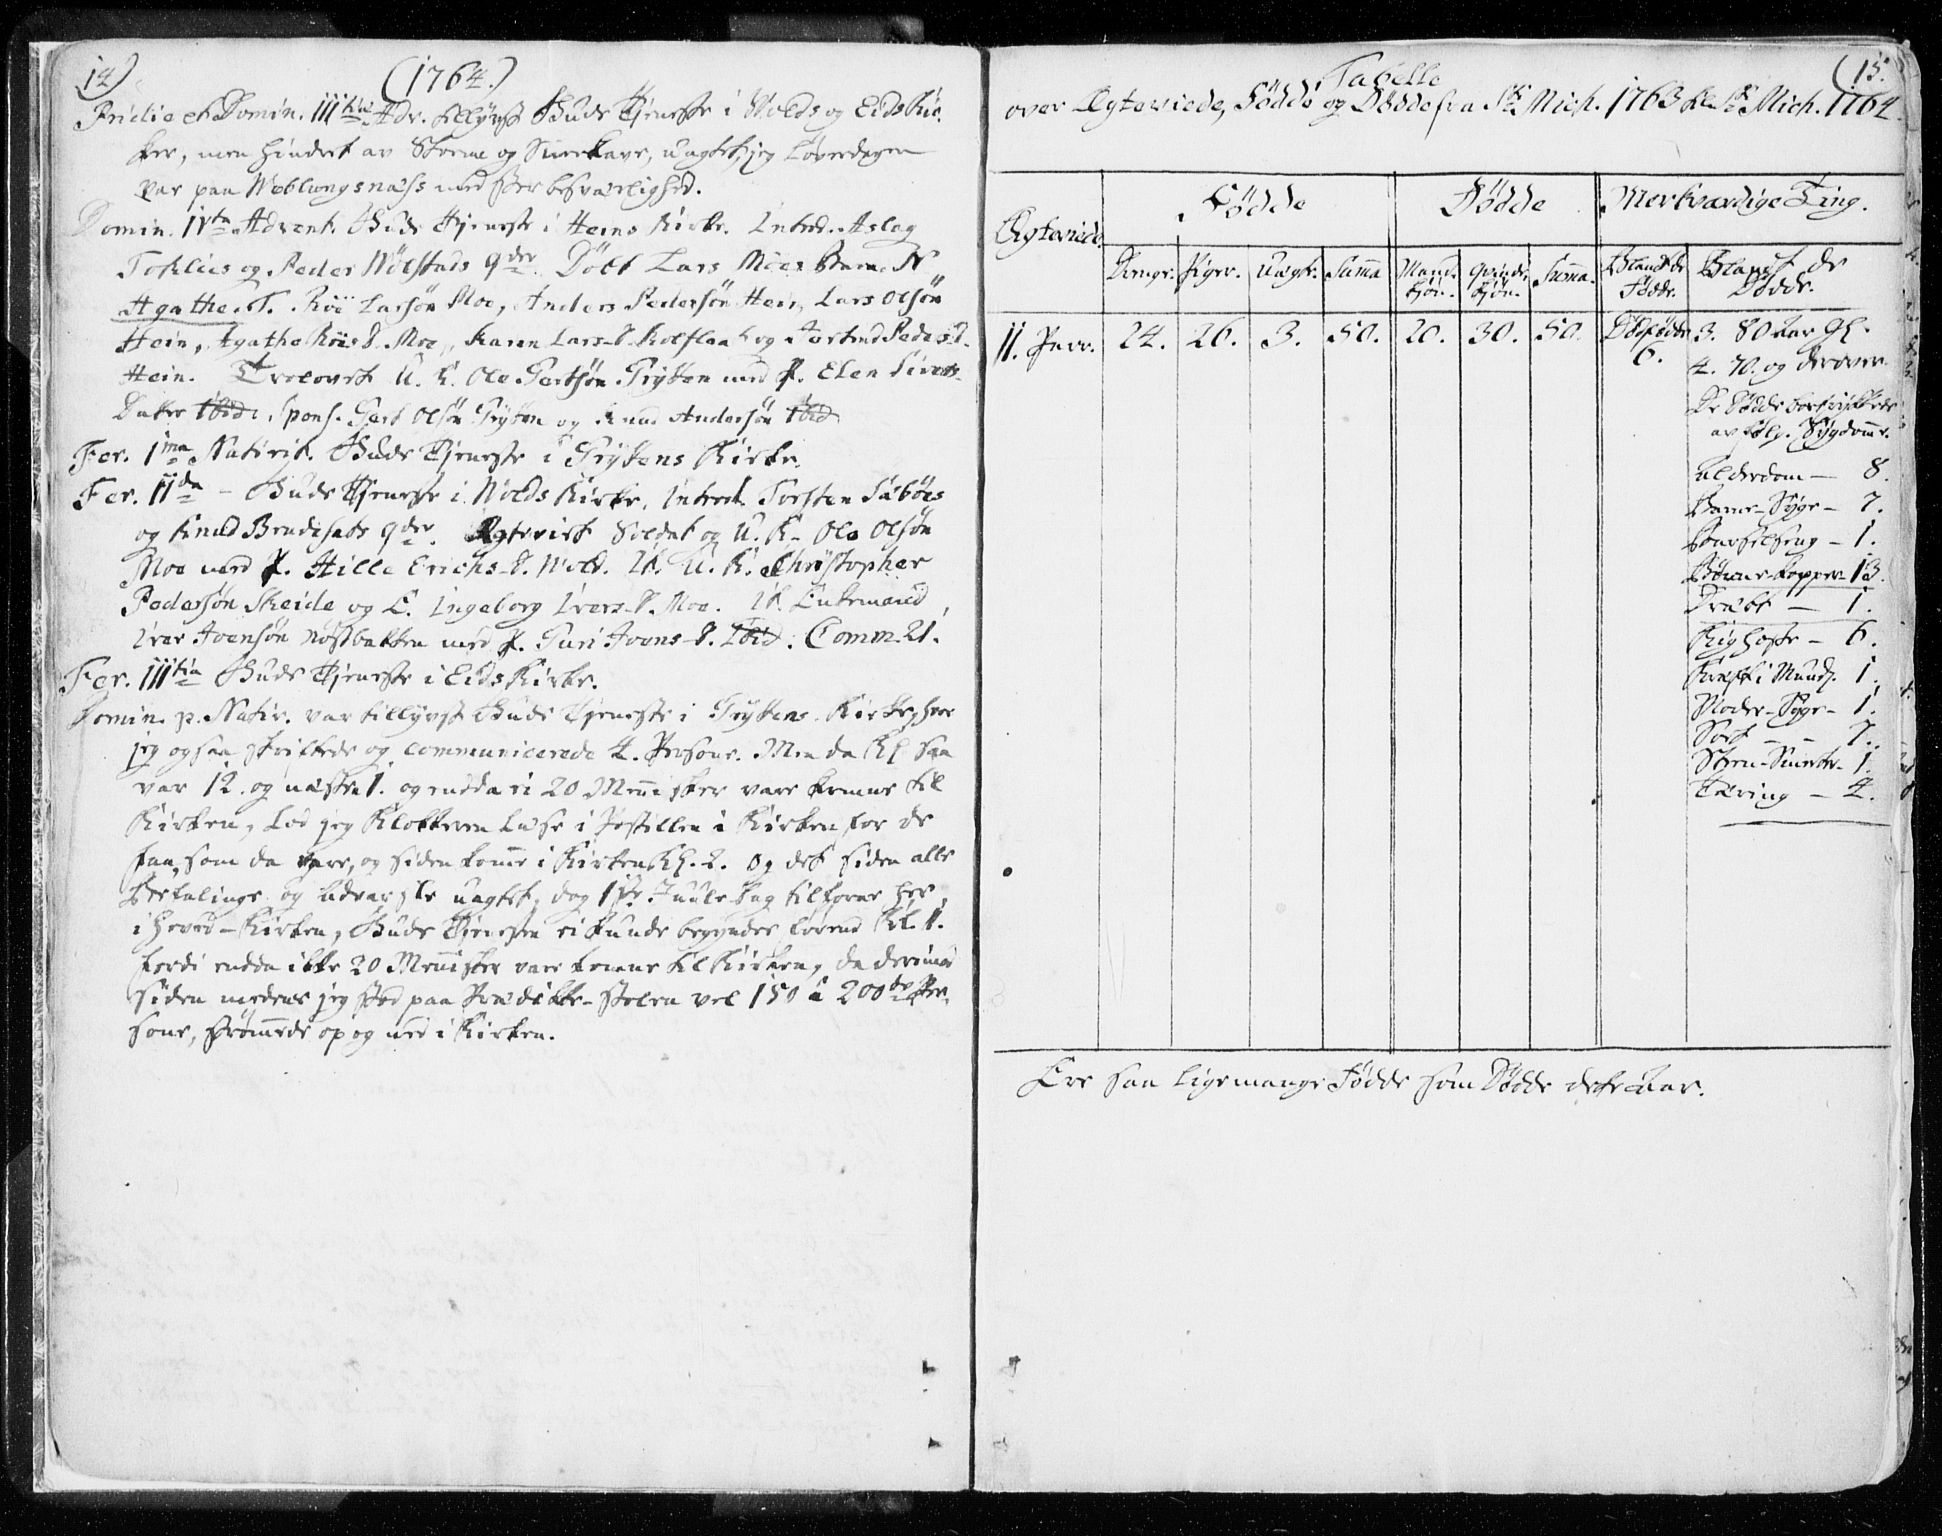 14)
(1764.)
Pridie et Domin. IIItia Adv. tillyust Guds Tjeneste i Wolds og Eids Kir-
ker, men hindret av Storme og Sneekave, uagtet jeg Løverdagen
var paa Weblungsnæss med stor besværlighed.
Domin. IVta Advent. Guds Tjeneste i Heens Kirke. Introd. Aslag
og Peder Wolstads qdr. Døbt Lars Moes Barn N
Agathe. T. Roi Larsøn Moe, Anders Pedersøn Hein, Lars Olsøn
Hein, Agathe Roies d. Moe, Karen Lars-d. og Peders d.
Hein. Trolovet U. K. Ole Gertsøn Gryten med P. Elen Siverts-
Datter ibid. spons. Gert Olsøn Gryten og Knud Andersøn ibid
Fer. Ima Nativit. Guds Tjeneste i Grytens Kirke.
Fer. IIda - Guds Tjeneste i Wolds Kirke. Introd. Torsten Sæbøes
og Knud qdr. Ægteviet Soldat og U. K. Ole Olsøn
Moe med P. Hille Erichs-d. Wold. It. U. K. Christopher
Pedersøn Skeide og E. Ingeborg Ivers-d. Moe. It. Enkemand
Iver Joensøn Nøstbakken med P. Guri Joens-d. Ibid. Comm. 21.
Fer. IIItia Guds Tjeneste i Eids Kirke.
Domin. p. Nativ. var tillyust Guds Tjeneste i Grytens Kirke, hvor
jeg ogsaa skriftede og communicerede 4. Persone. Men da Kl. saa
var 12. og næsten 1. og endda ei 20 Mennisker vare komne til
Kirken, lod jeg Klokkeren læse i Postillen i Kirken for de
faa, som da vare, og siden komme i Kirken Kl. 2. Og det siden alle
Befalinge og uagtet, dog 1ste Juule Dag tilforne her
i Hoved-Kirken, Guds Tjenesten ei kunde begyndes førend Kl. 1.
fordi endda ikke 20 Mennisker vare komne til Kirken, da derimod
siden medens jeg stod paa Prædike-stolen vel 150 à 200de Per-
sone, strømmede op og ned i Kirken.
(15.
Tabelle
over Ægteviede, Fødde og Dødde fra Sti Mich. 1763 til Sti Mich. 1764.
Ægteviede
Fødde
Dødde
Merkværdige Ting.
Drenge. Piger. Uægte. Summa Mand-kjøn. Qvinde-kjøn. Summa. Blandt de Fødde. Blandt de Dødde.
11. Parr. 24. 26. 3. 50. 20. 30. 50. Dødfødde 6.
3. 80 Aar gl.
4. 70. og derover.
De Dødde bortrykkede
av følg. Sygdomme.
Alderdom — 8.
Barne-Syge — 7.
Barselseng — 1.
Børne-kopper — 13.
Dræbt — 1.
Kighoste — 6.
Kræft i Mund. 1.
Moder-Syge — 1.
Sott - - 7.
Steen-Smerte - 1.
Tæring — 4.
Ere saa lige mange Fødde som Dødde dette Aar.